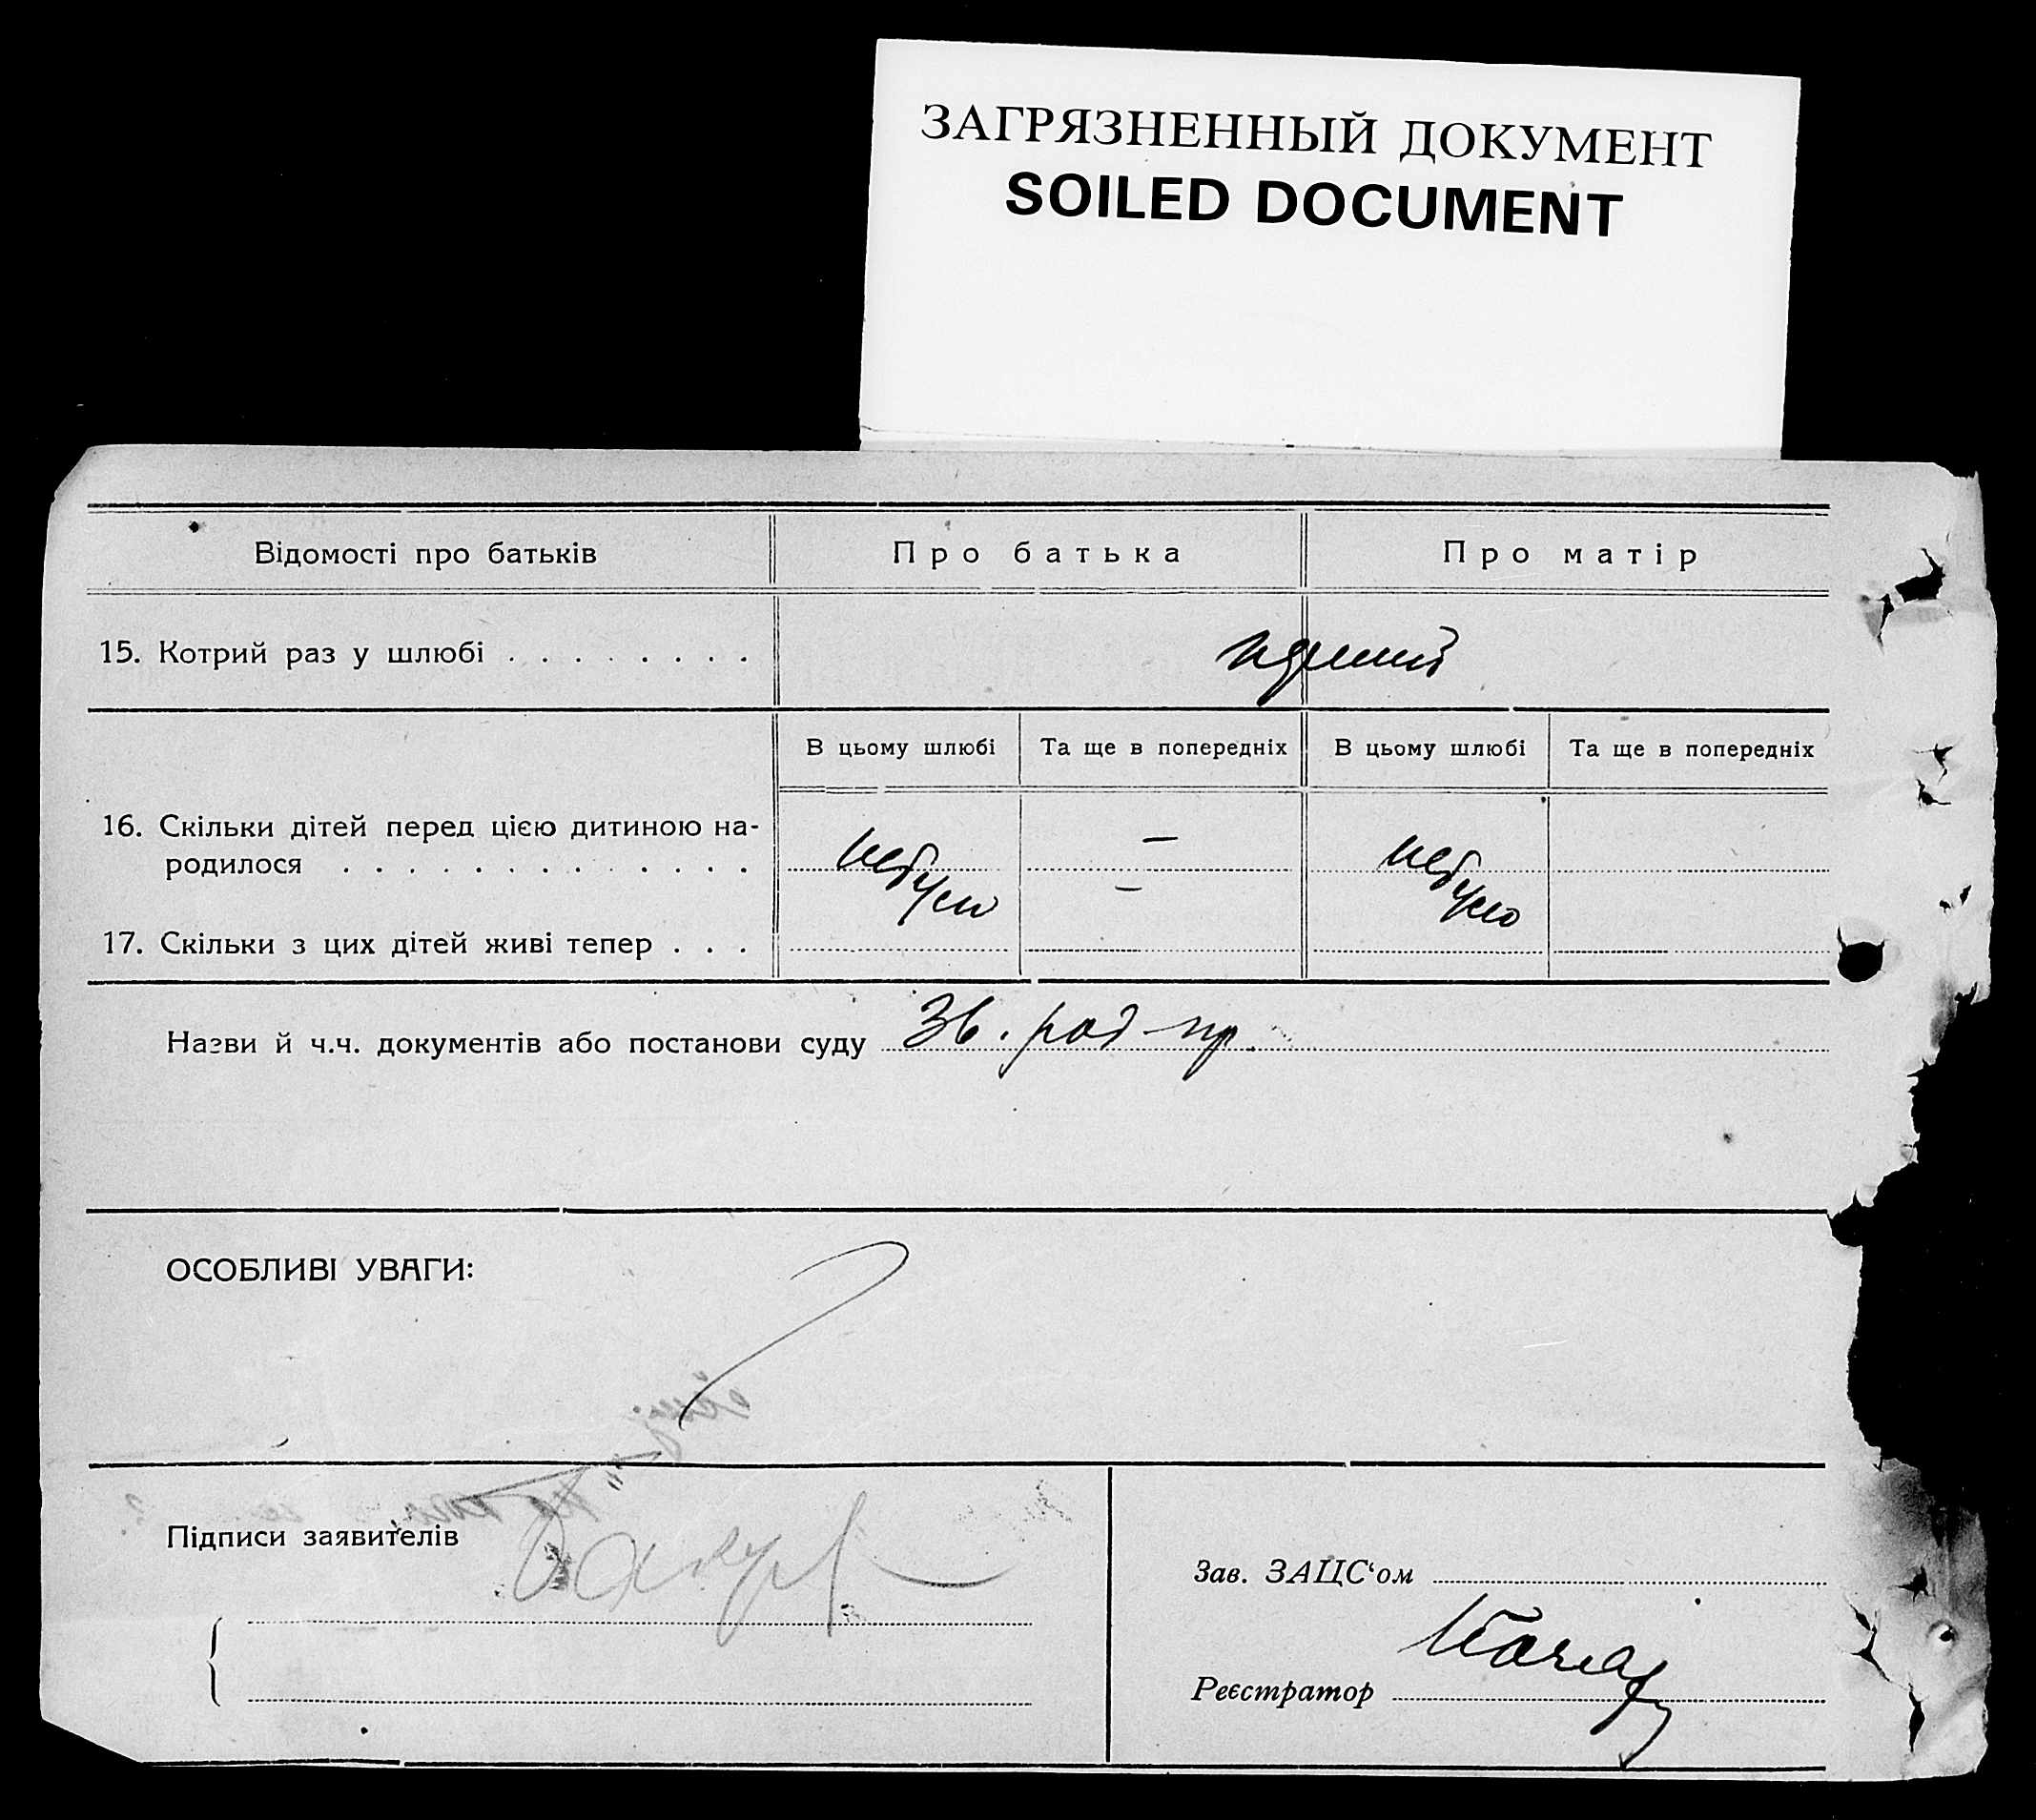 ЗАГРЯЗНЕННЫЙ ДОКУМЕНТ
SOILED DOCUMENT
Відомості про батьків Про батька Про матір
15. Котрий раз у шлюбі . . . . . . . .
В цьому шлюбі Та ще в попередніх В цьому шлюбі Та ще в попередніх
16. Скільки дітей перед цією дитиною на-
родилося . . . . . . . . . . . . . — 
небуло — небуло
17. Скільки з цих дітей живі тепер . . .
Назви й ч.ч. документів або постанови суду Зв. род-пр.
ОСОБЛИВІ УВАГИ:
Підписи заявителів
Зав. ЗАЦС‘ом
Реєстратор